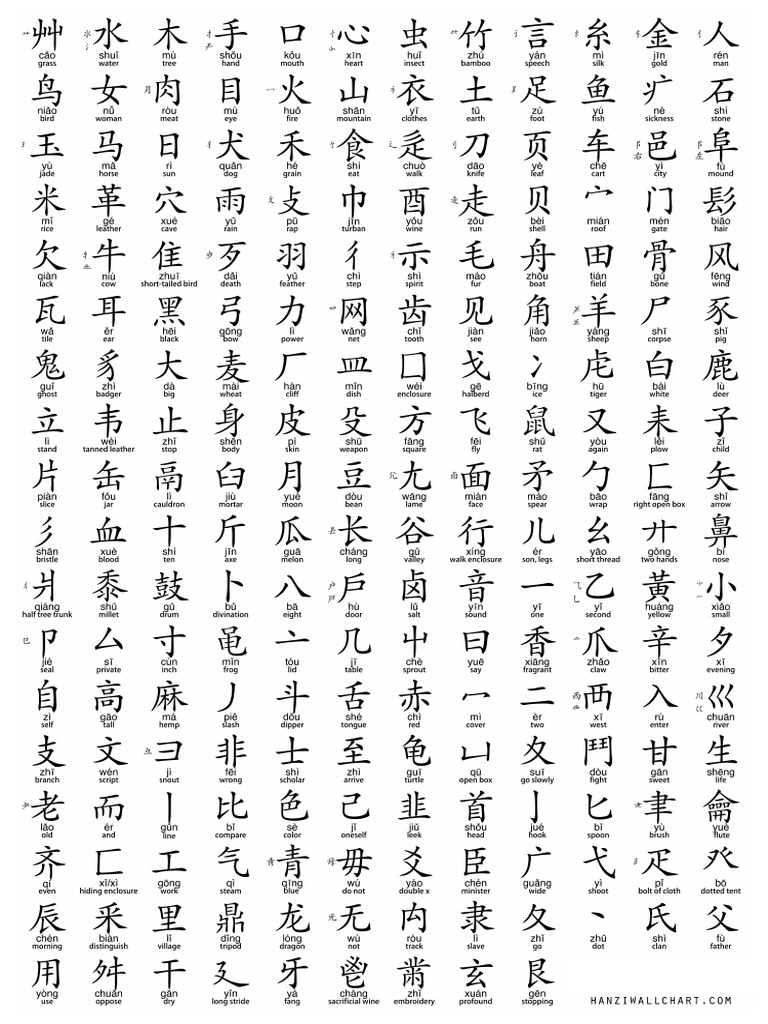 艸 水 木 手 口 心 虫 竹 言 糸 金 人
cǎo shuǐ mù shǒu kǒu xīn huǐ zhú yán mì jīn rén
grass water tree hand mouth heart insect bamboo speech silk gold man
鸟 女 肉 目 火 山 衣 土 足 鱼 疒 石
niǎo nǚ ròu mù huǒ shān yī tǔ zú yú nè shí
bird woman meat eye fire mountain clothes earth foot fish sickness stone
玉 马 日 犬 禾 食 辵 刀 页 车 邑 阜
yù mǎ rì quǎn hé shí chuò dāo yè chē yì fù
jade horse sun dog grain eat walk knife leaf cart city mound
米 革 穴 雨 攴 巾 酉 走 贝 宀 门 髟
mǐ gé xué yǔ pū jīn yǒu zǒu bèi mián mén biāo
rice leather cave rain rap turban wine run shell roof gate hair
欠 牛 隹 歹 羽 彳 示 毛 舟 田 骨 风
qiàn niú zhuī dǎi yǔ chì shì máo zhōu tián gǔ fēng
lack cow short-tailed bird death feather step spirit fur boat field bone wind
瓦 耳 黑 弓 力 网 齿 见 角 羊 尸 豕
wǎ ěr hēi gōng lì wǎng chǐ jiàn jiǎo yáng shī shǐ
tile ear black bow power net tooth see horn sheep corpse pig
鬼 豸 大 麦 厂 皿 囗 戈 冫 虍 白 鹿
guǐ zhì dà mài hàn mǐn wéi gē bīng hū bái lù
ghost badger big wheat cliff dish enclosure halberd ice tiger white deer
立 韦 止 身 皮 殳 方 飞 鼠 又 耒 子
lì wéi zhǐ shēn pí shū fāng fēi shǔ yòu lěi zǐ
stand tanned leather stop body skin weapon square fly rat again plow child
片 缶 鬲 臼 月 豆 尢 面 矛 勹 匚 矢
piàn fǒu lì jiù yuè dòu wāng miàn máo bāo fāng shǐ
slice jar cauldron mortar moon bean lame face spear wrap right open box arrow
彡 血 十 斤 瓜 长 谷 行 儿 幺 廾 鼻
shān xuè shí jīn guā cháng gǔ xíng ér yāo gǒng bí
bristle blood ten axe melon long valley walk enclosure son, legs short thread two hands nose
爿 黍 鼓 卜 八 戶 卤 音 一 乙 黃 小
qiáng shǔ gǔ bǔ bā hù lǔ yīn yī yǐ huáng xiǎo
half tree trunk millet drum divination eight door salt sound one second yellow small
卩 厶 寸 黾 亠 几 屮 曰 香 爪 辛 夕
jié sī cùn mǐn tóu jī chè yuē xiāng zhǎo xīn xī
seal private inch frog lid table sprout say fragrant claw bitter evening
自 高 麻 丿 斗 舌 赤 冖 二 襾 入 巛
zì gāo má piě dǒu shé chì mì èr xī rù chuān
self tall hemp slash dipper tongue red cover two west enter river
支 文 彐 非 士 至 龟 凵 夊 鬥 甘 生
zhī wén jì fēi shì zhì guī qǔ suī dòu gān shēng
branch script snout wrong scholar arrive turtle open box go slowly fight sweet life
老 而 丨 比 色 己 韭 首 亅 匕 聿 龠
lǎo ér gǔn bǐ sè jǐ jiǔ shǒu jué bǐ yù yuè
old and line compare color oneself leek head hook spoon brush flute
齐 匸 工 气 青 毋 爻 臣 广 弋 疋 癶
qí xǐ/xì gōng qì qīng wú yáo chén guǎng yì pǐ bō
even hiding enclosure work steam blue do not double x minister wide shoot bolt of cloth dotted tent
辰 釆 里 鼎 龙 无 禸 隶 夂 丶 氏 父
chén biàn lǐ dǐng lóng wú róu lì zhǐ zhǔ shì fù
morning distinguish village tripod dragon not track slave go dot clan father
用 舛 干 廴 牙 鬯 黹 玄 艮
yòng chuǎn gān yǐn yá chàng zhǐ xuán gěn
use oppose dry long stride fang sacrificial wine embroidery profound stopping
HANZIWALLCHART.COM